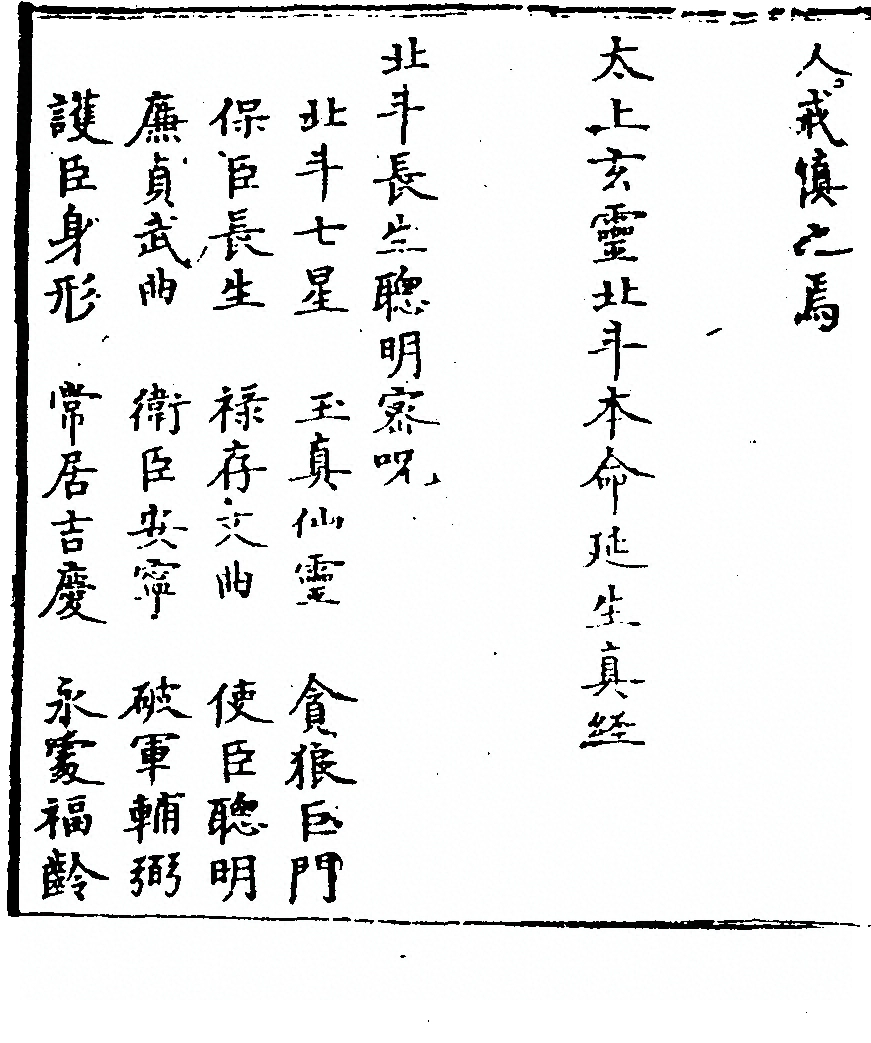 人。戒慎之焉
太上玄靈北斗本命延生真經
北斗長生聰明密呪
北斗七星　玉真仙靈　貪狼巨門
保臣長生　祿存文曲　使臣聰明
廉貞武曲　衛臣安寧　破軍輔弼
護臣身形　常居吉慶　永處福齡